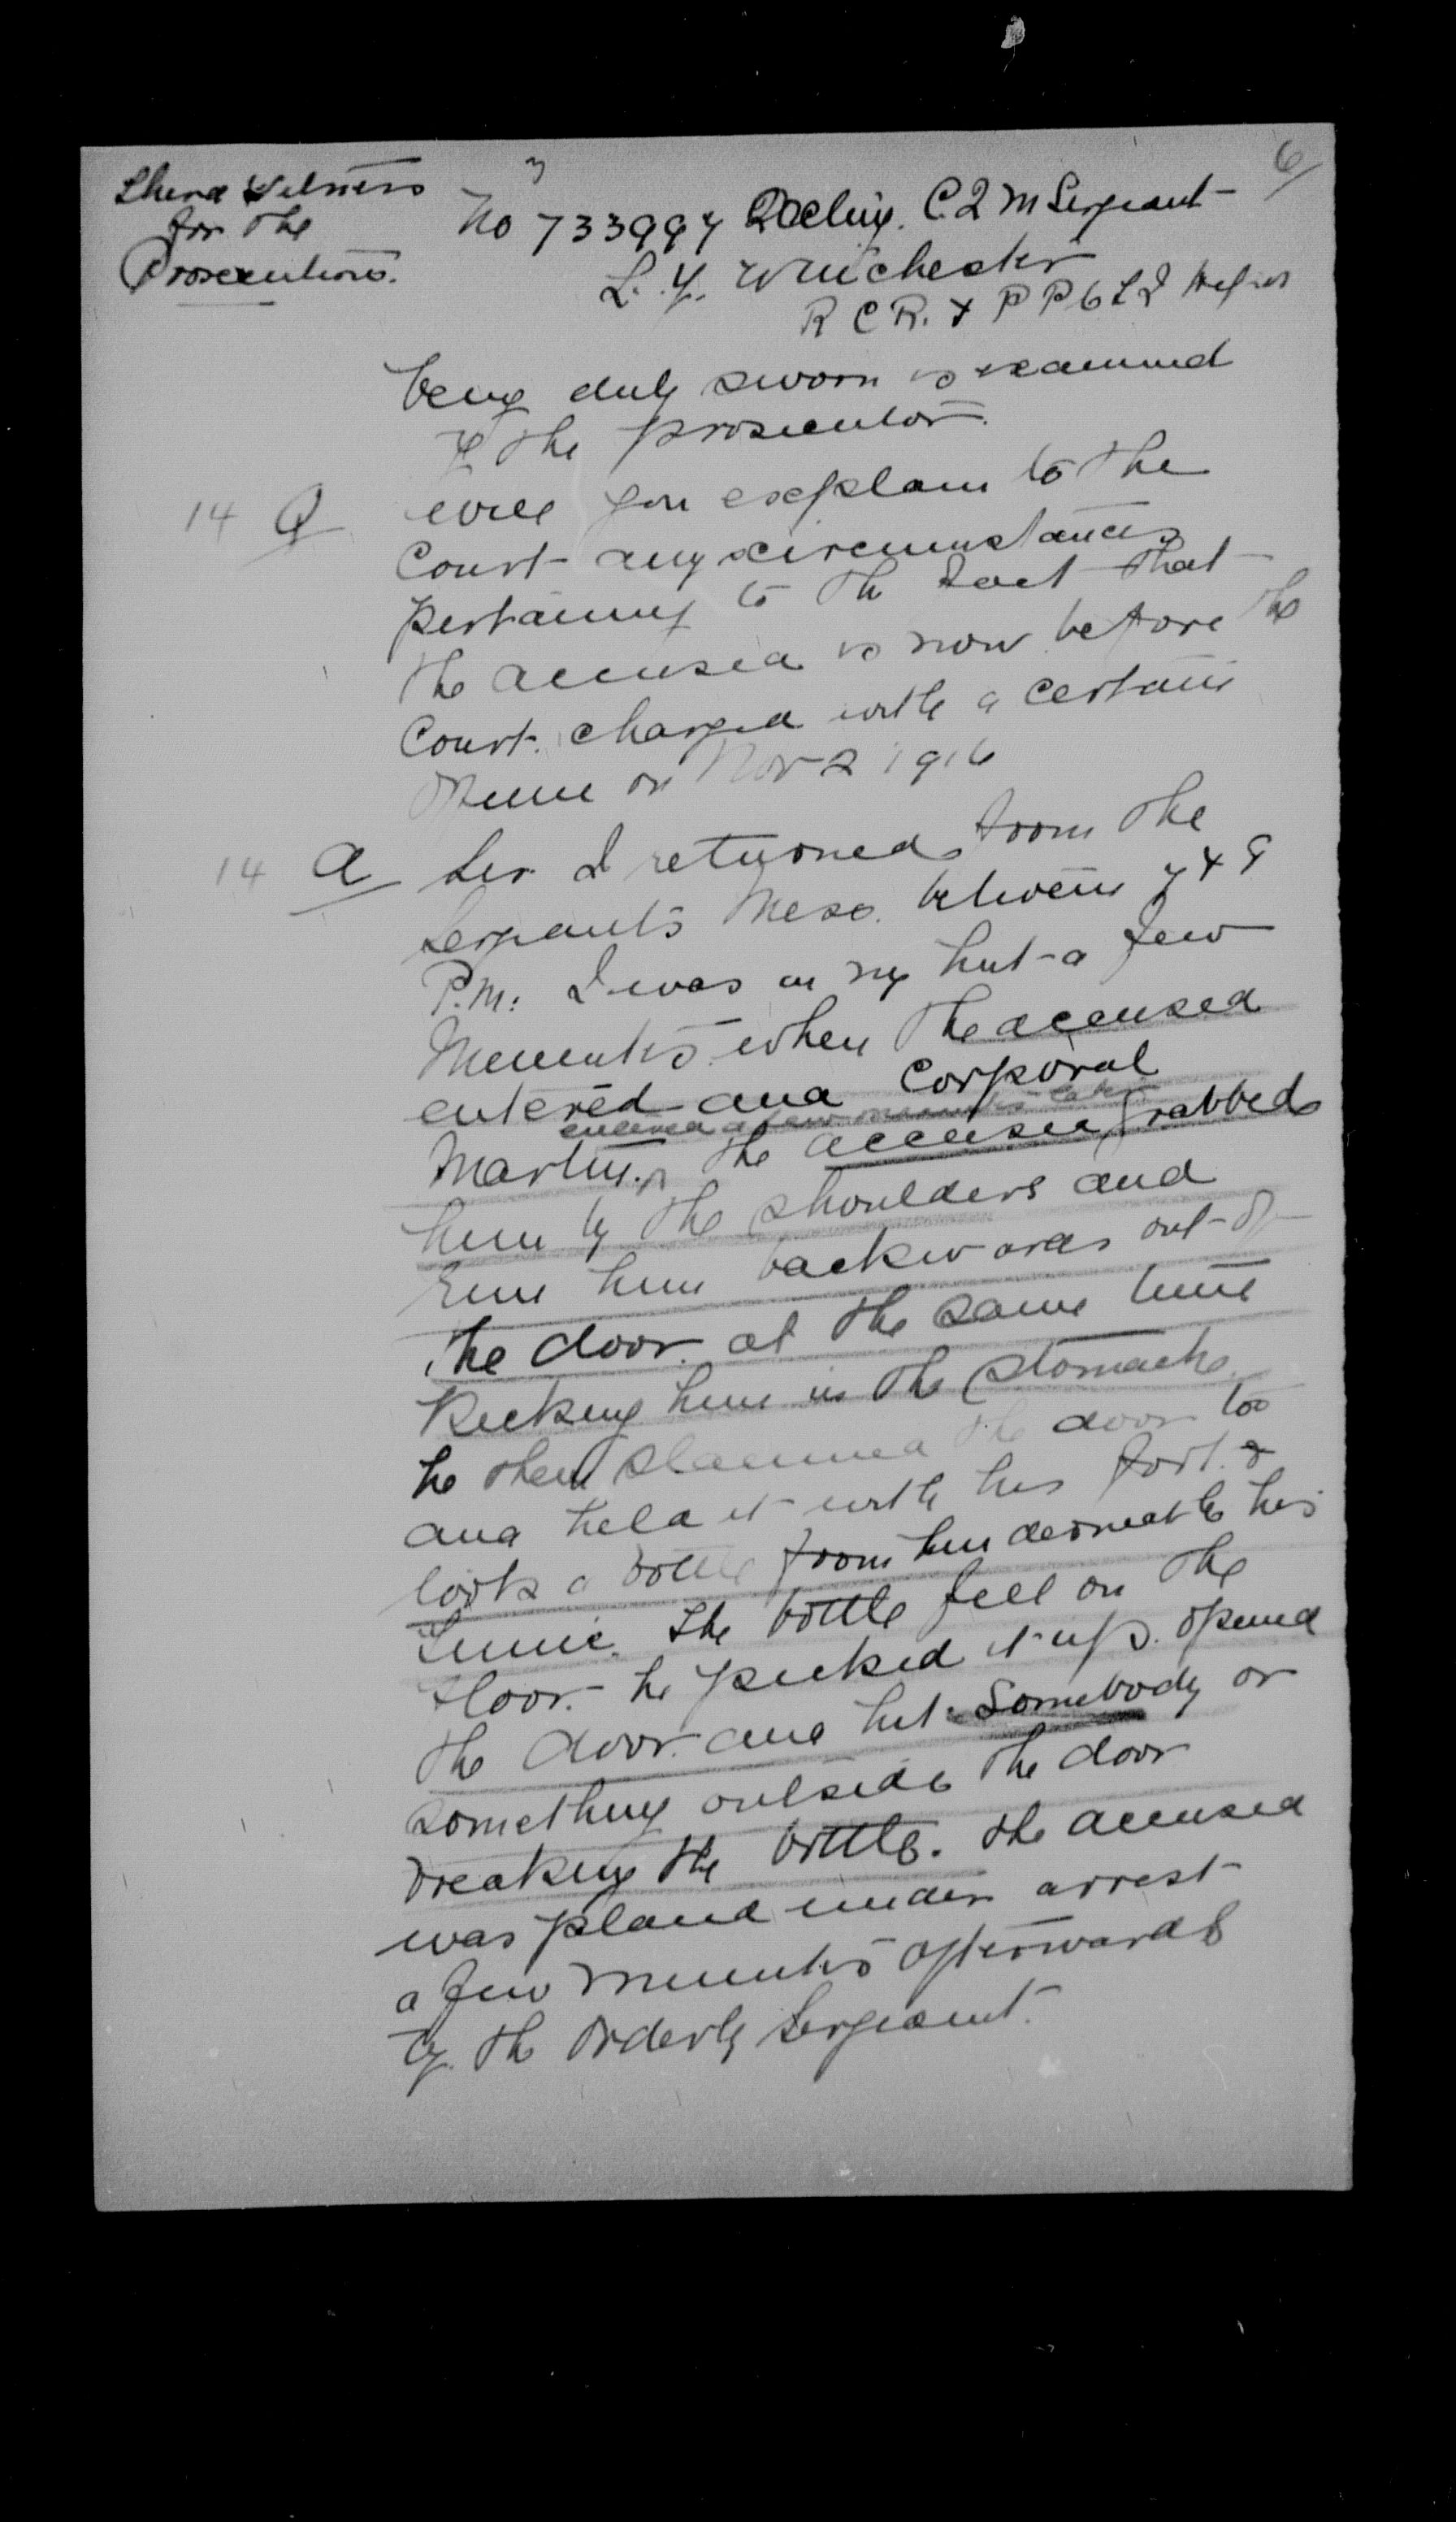 6/
Third Witness
for the
Prosecution.
No 733997 Acting. C.Q M Sergeant
L. Y. Winchester
R C R. & P P C L I Depot
being duly sworn is examined
by the prosecutor.
14 Q Will you explain to the
Court any circumstances
pertaining to the fact that
the accused is now before the
Court. charged with a certain
offence on Nov 2 1916
14 A Sir I returned from the
Sergeants Mess. between 7 & 9
P.M. I was in my hut a few
Minutes when the accused
entered and Corporal
entered a few minutes later
Martin. the accused grabbed
him by the shoulders and
him backwards out of
the door. at the same time
Kicking him in the stomach
he then slammed the door too
and held it with his foot &
took a bottle from underneath his
Tunic. The bottle fell on the
floor. he picked it up. opened
the door. and hit somebody or
something outside the door
breaking the bottle. the accused
was placed under arrest
a few minutes afterwards
by the Orderly Sergeant.